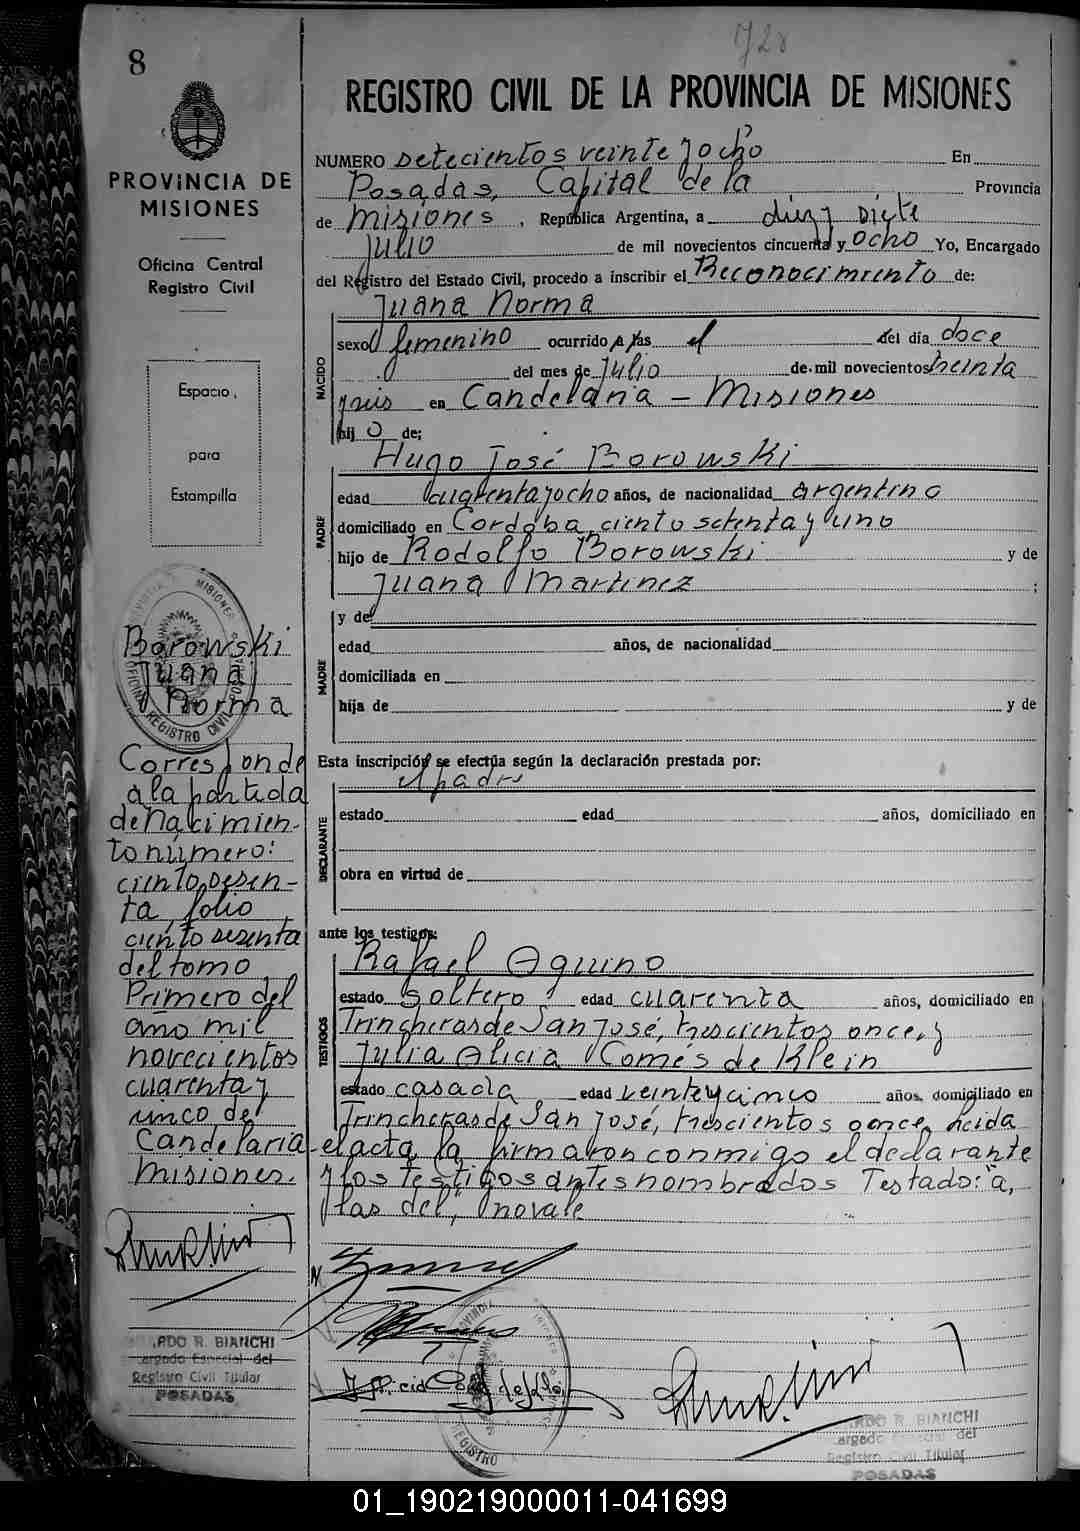 728
8
REGISTRO CIVIL DE LA PROVINCIA DE MISIONES
PROVINCIA DE
MISIONES
Oficina Central
Registro Civil
Espacio
para
Estampilla
NUMERO Setecientos veinte y ocho En
Posadas, Capital de la Provincia
de Misiones, República Argentina, a diez y siete
Julio de mil novecientos cincuenta y ocho Yo, Encargado
del Registro del Estado Civil, procedo a inscribir el Reconocimiento de:
Juana Norma
NACIDO
sexo femenino ocurrido a las el del día doce
del mes de Julio de mil novecientos treinta
y seis en Candelaria - Misiones
hij o de;
PADRE
Hugo José Borowski
edad cuarenta y ocho años, de nacionalidad argentino
domiciliado en Cordoba, ciento setenta y uno
hijo de Rodolfo Borowski y de
Juana Martinez ;
MADRE
y de
edad años, de nacionalidad
domiciliada en
hija de y de
Esta inscripción se efectúa según la declaración prestada por:
el padre
DECLARANTE
estado edad años, domiciliado en
obra en virtud de
ante los testigos:
TESTIGOS
Rafael Aquino
estado soltero edad cuarenta años, domiciliado en
Trincheras de San José, trescientos once, y
Julia Alicia Comés de Klein
estado casada edad veinte y cinco años, domiciliado en
Trincheras de San José, trescientos once, Leida
el acta la firmaron conmigo el declarante
y los testigos antes nombrados Testado: "a,
las del", no vale
Borowski
Juana
Norma
Corresponde
a la partida
de nacimien-
to número:
ciento sesen-
ta, folio
ciento sesenta
del tomo
Primero del
año mil
novecientos
cuarenta y
cinco de
Candelaria
Misiones.
ARDO R. BIANCHI
cargado Especial del
Registro Civil Titular
POSADAS
REGISTRO
ARDO R. BIANCHI
argado Especial del
Registro Civil Titular
POSADAS
01_190219000011-041699